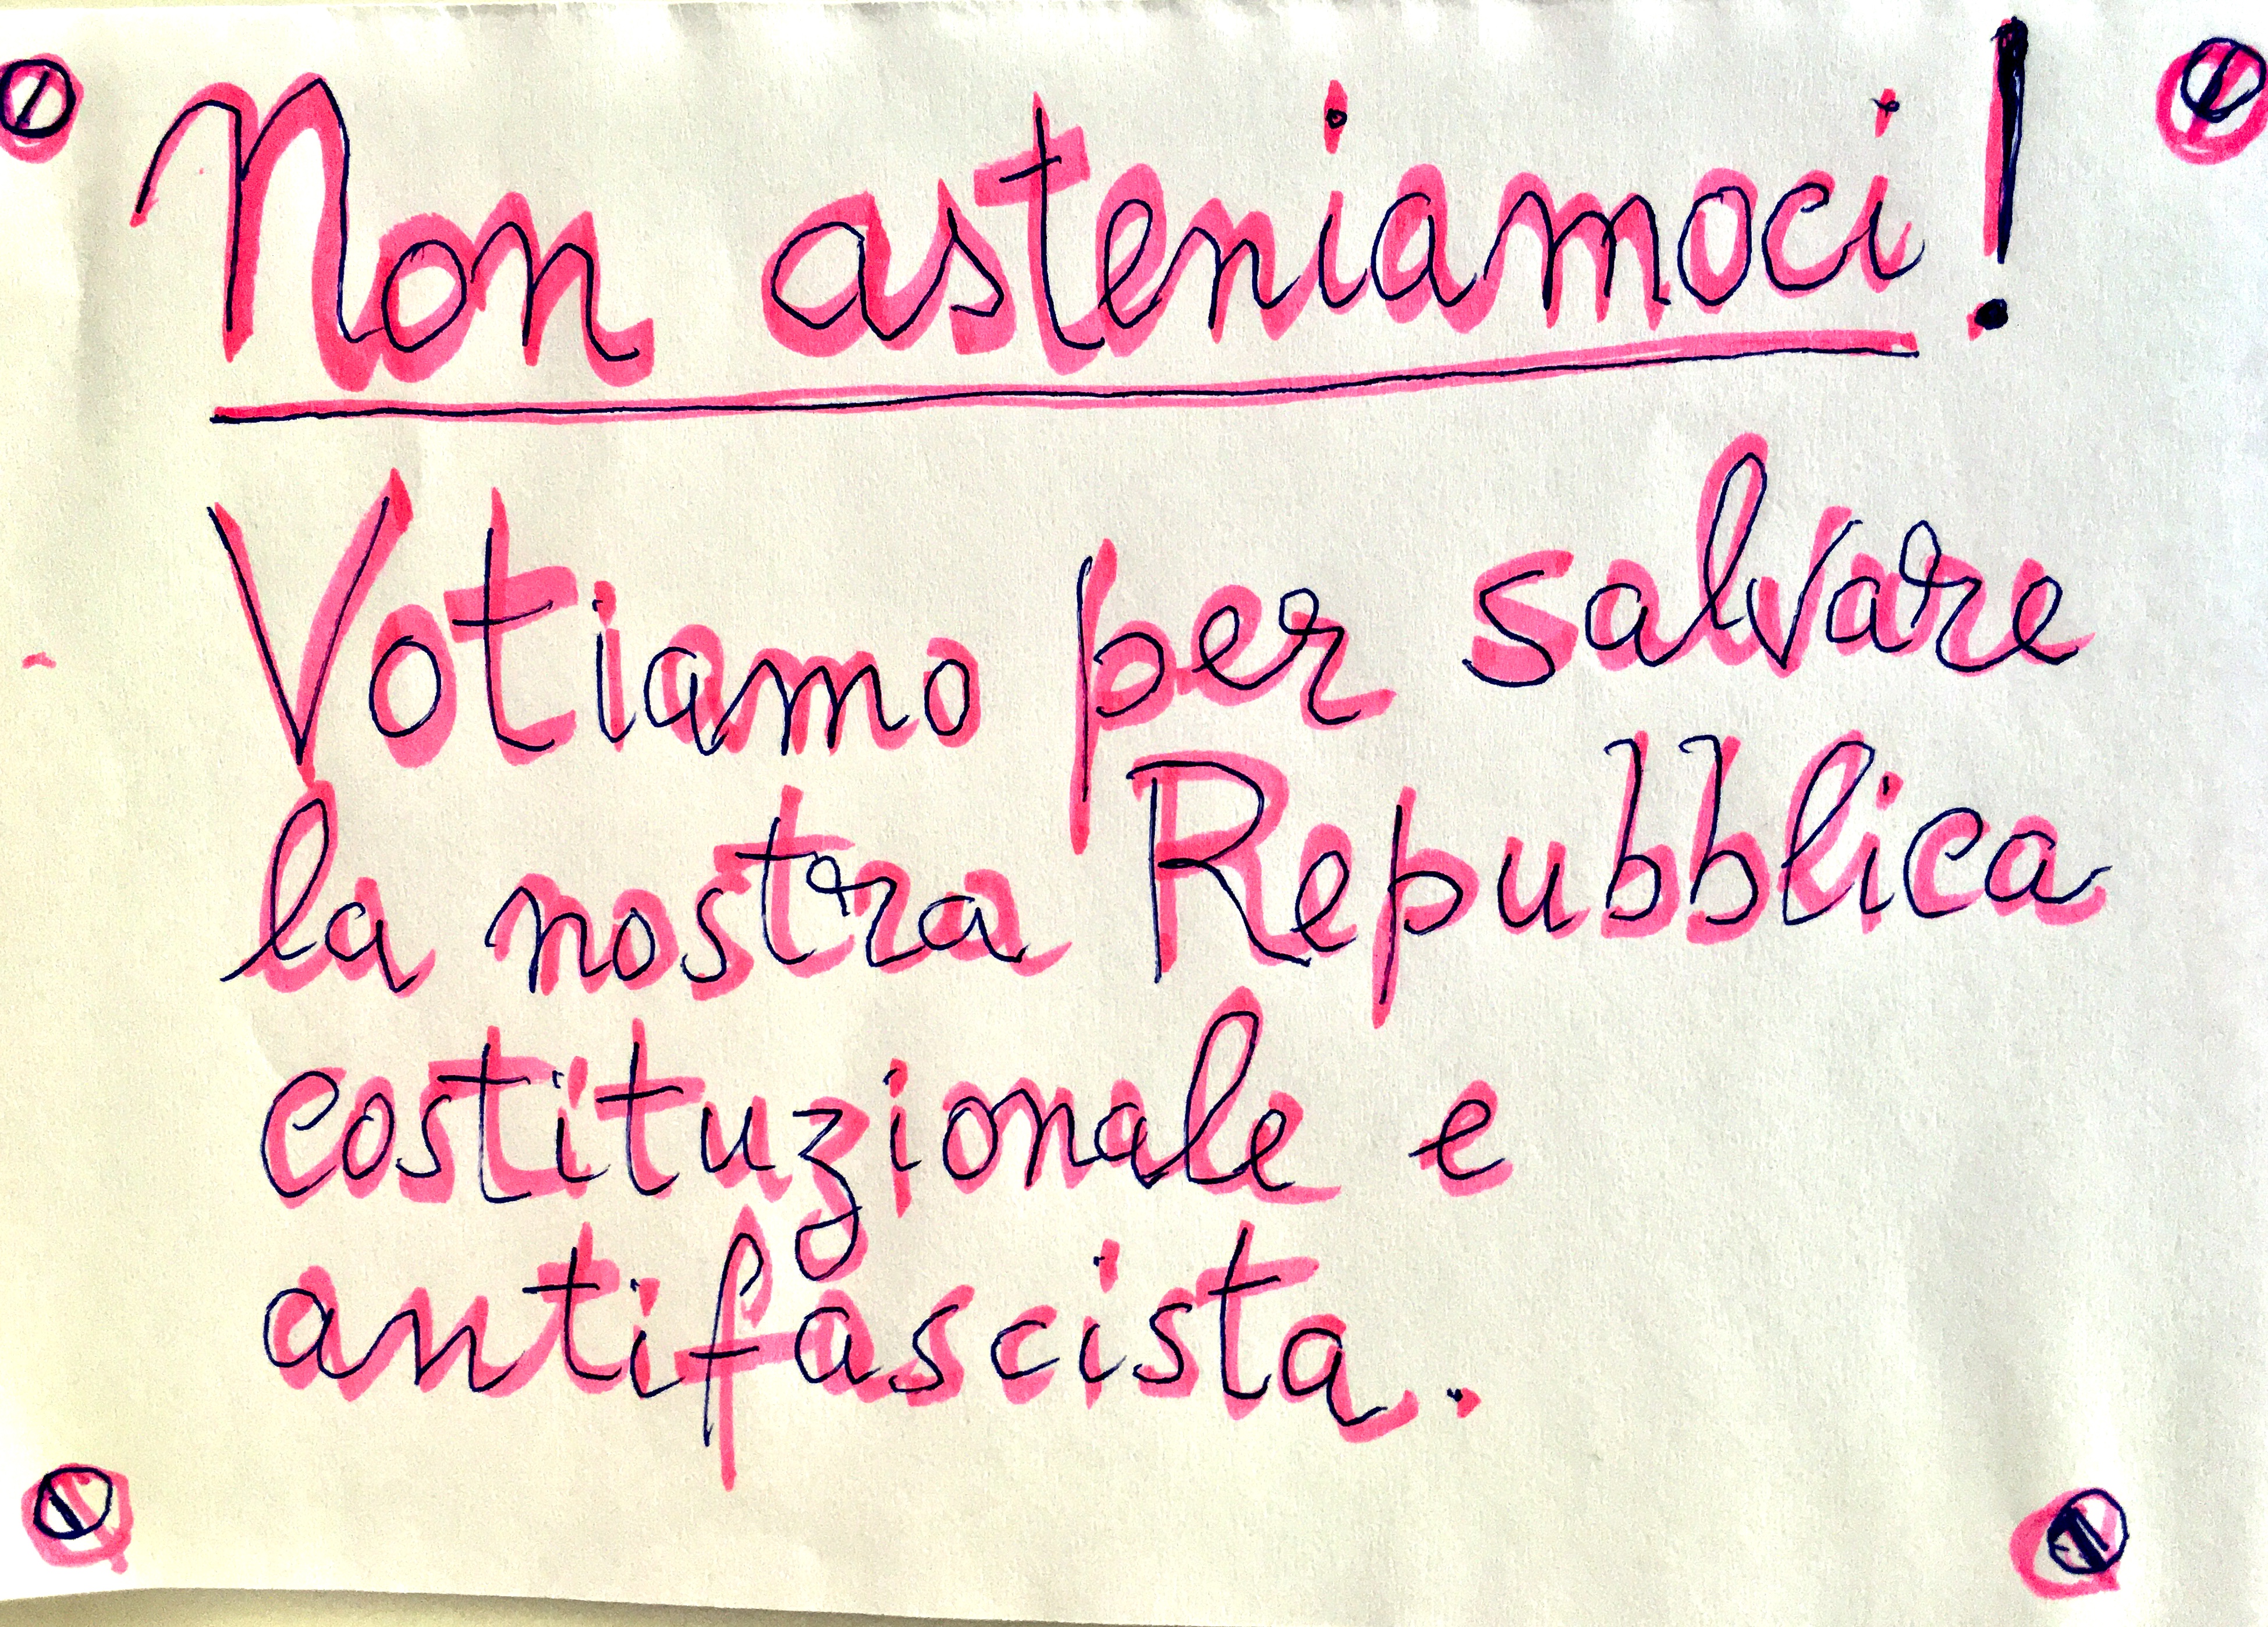 Non asteniamoci!
Votiamo per salvare
la nostra Repubblica
costituzionale e
antifascista.